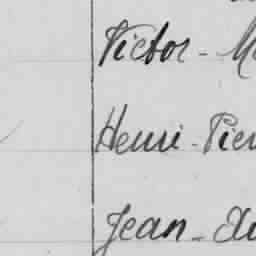 Victor - M
Henri - Pier
Jean -